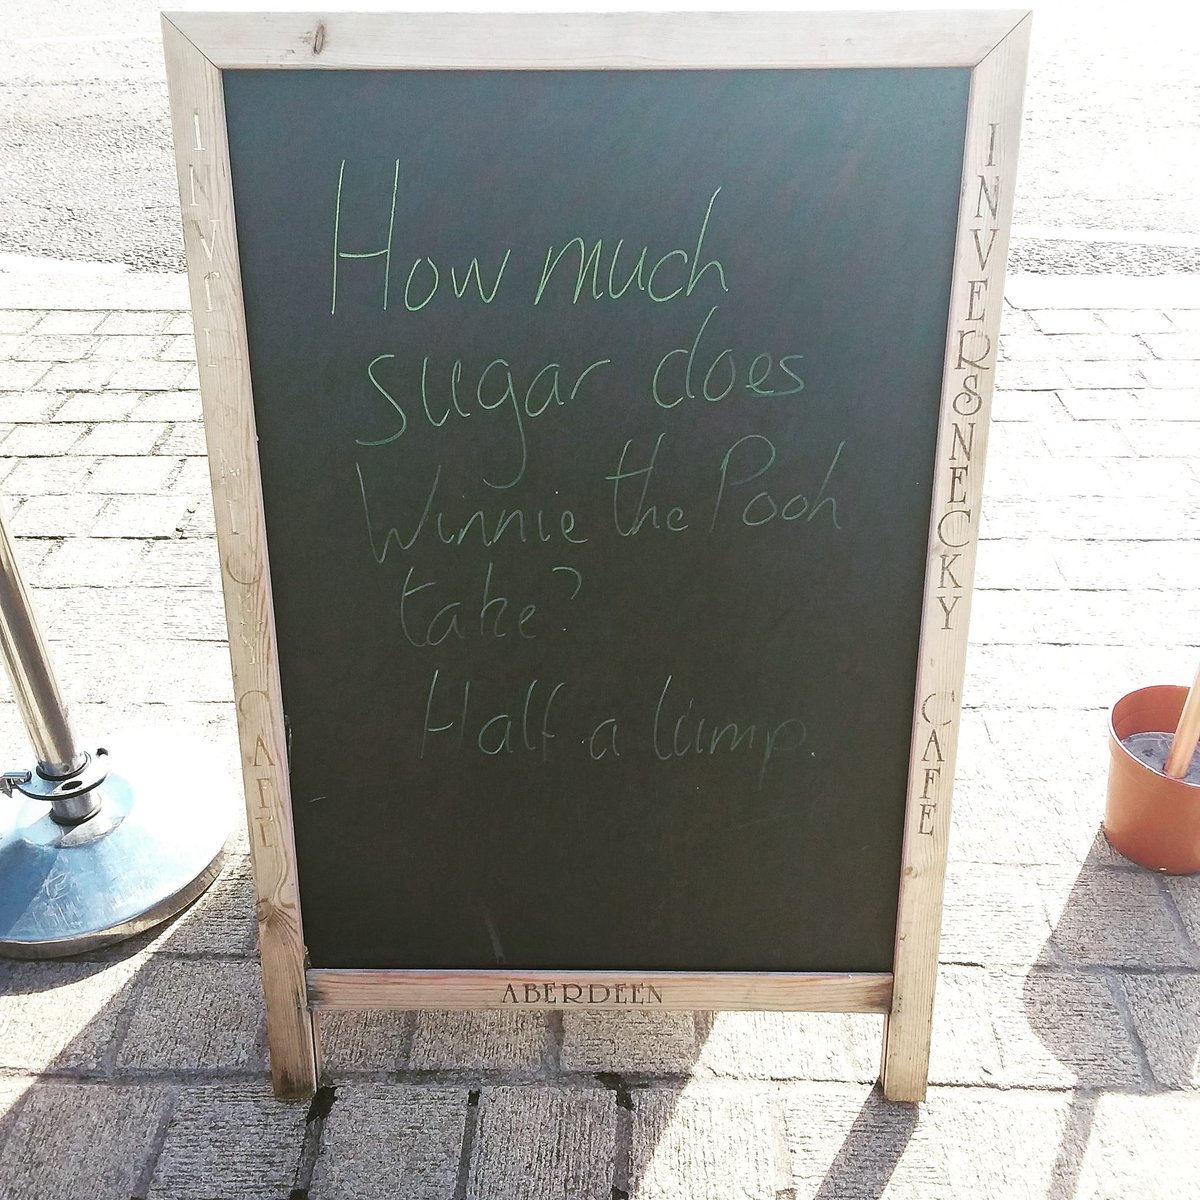 How much
sugar does
Winnie the Pooh
take?
Half a lump.
INVERSNECKY CAFE
INVERSNECKY CAFE
ABERDEEN